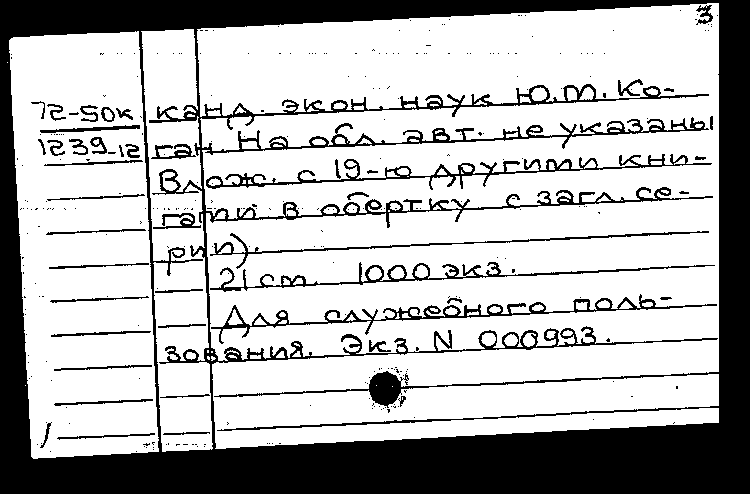 3
72-50к канд. экон. наук Ю.М. Ко-
1239-12 ган. На обл. авт. не указаны
Влож. с 19-ю другими кни-
гами в обертку с загл. се-
рии).
21 см. 1000 экз.
Для служебного поль-
зования. Экз. N 000993.